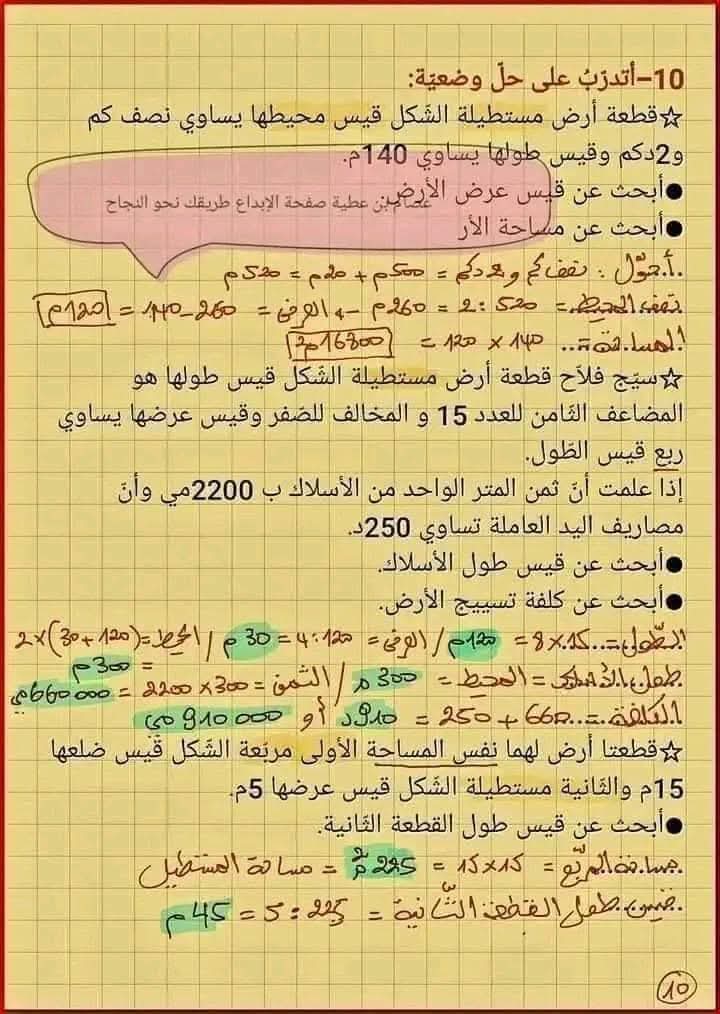 10–أتدرّبُ على حلّ وضعيّة:
☆قطعة أرض مستطيلة الشّكل قيس محيطها يساوي نصف كم
و2دكم وقيس طولها يساوي 140م.
●أبحث عن قيس عرض الأرض.
عصام بن عطية صفحة الإبداع طريقك نحو النجاح
●أبحث عن مساحة الأر
أحوّل : نصف كم و2دكم = 500م + 20م = 520م
نصف المحيط = 520 : 2 = 260م ← العرض = 260 - 140 = 120م
المساحة = 140 × 120 = 16800م²
☆سيّج فلاّح قطعة أرض مستطيلة الشّكل قيس طولها هو
المضاعف الثّامن للعدد 15 و المخالف للصّفر وقيس عرضها يساوي
ربع قيس الطّول.
إذا علمت أنّ ثمن المتر الواحد من الأسلاك ب 2200مي وأنّ
مصاريف اليد العاملة تساوي 250د.
●أبحث عن قيس طول الأسلاك.
●أبحث عن كلفة تسييج الأرض.
الطّول = 15 × 8 = 120م / العرض = 120 : 4 = 30م / المحيط = (120 + 30) × 2
= 300م
طول الأسلاك = المحيط = 300م / الثمن = 300 × 2200 = 660000مي
الكلفة = 660 + 250 = 910د أو 910000مي
☆قطعتا أرض لهما نفس المساحة الأولى مربّعة الشّكل قيس ضلعها
15م والثّانية مستطيلة الشّكل قيس عرضها 5م.
●أبحث عن قيس طول القطعة الثّانية.
مساحة المربّع = 15 × 15 = 225م² = مساحة المستطيل
قيس طول القطعة الثّانية = 225 : 5 = 45م
10